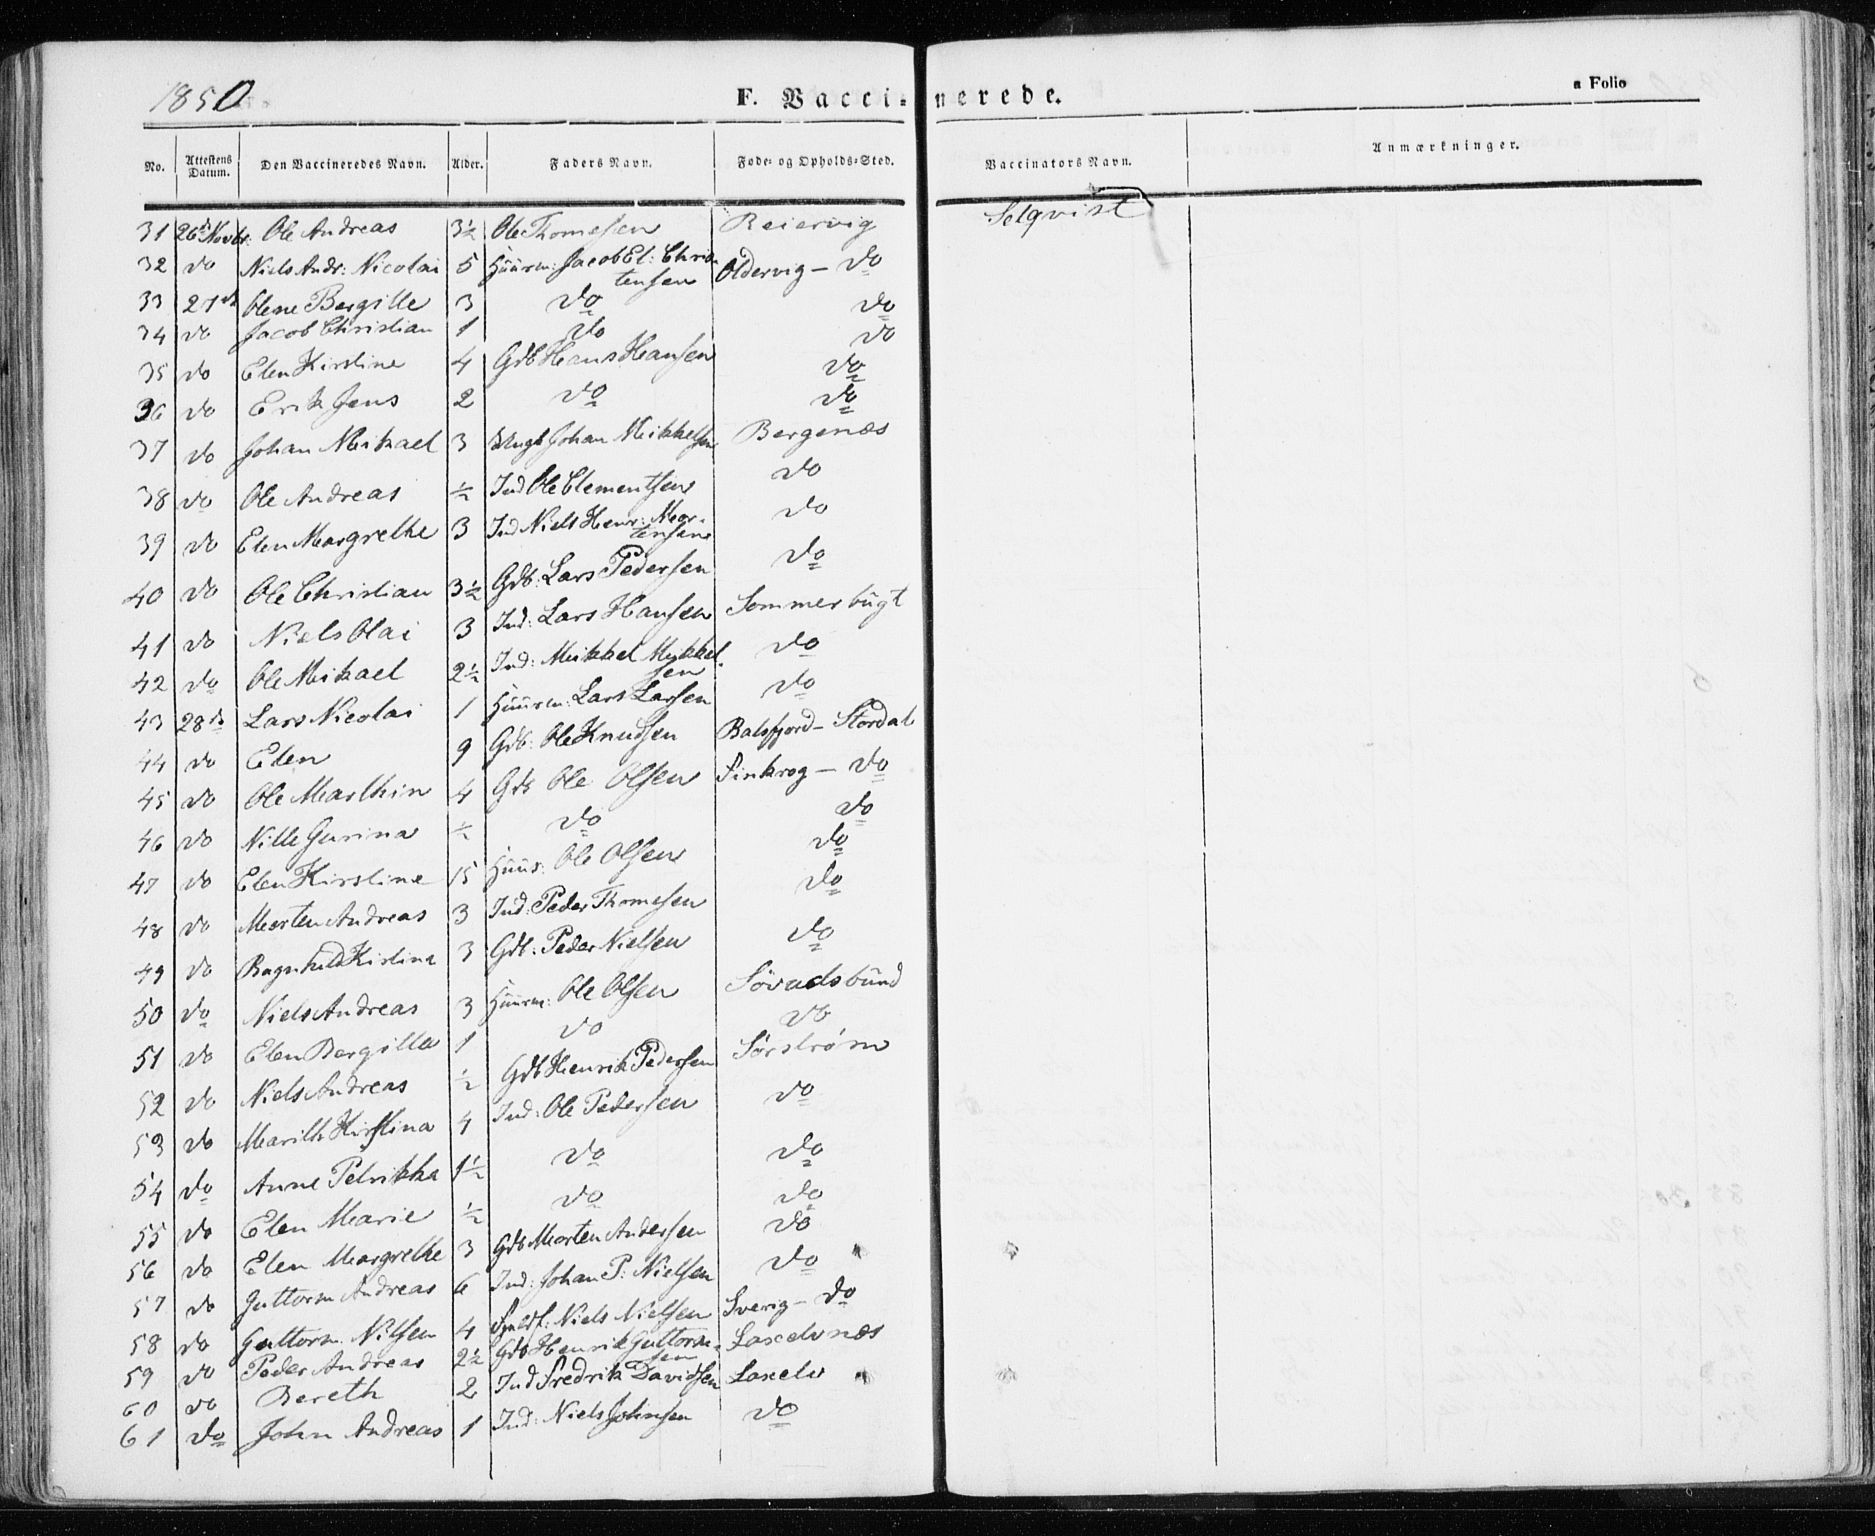 1850 F. Vaccinerede. a Folio
No. Attestens Datum. Den Vaccineredes Navn. Alder. Faders Navn. Føde- og Opholds-Sted. Vaccinators Navn. Anmærkninger.
31 26de Novbr: Ole Andreas 3½ Ole Thomesen Reiervig Selqvist
32 do Niels Andr: Nicolai 5 Huusm: Jacob El: Chris-tensen Oldervig - do
33 27de Olene Bergitte 3 do do
34 do Jacob Christian 1 do do
35 do Elen Kirstine 4 Gdb Hans Hansen do
36 do Erik Jens 2 do do
37 do Johan Meikael 3 Ungk Johan Meikkelsen Bergenæs
38 do Ole Andreas ½ Ind Ole Clementsen do
39 do Elen Margrethe 3 Ind Niels Henr: Mor-tensen do
40 do Ole Christian 3½ Gdb: Lars Pedersen do
41 do Niels Olai 3 Ind: Lars Hansen Sommerbugt
42 do Ole Meikael 2½ Ind: Meikkel Meikkel-sen do
43 28de Lars Nicolai 1 Huusm: Lars Larsen do
44 do Elen 9 Gdb: Ole Knudsen Balsfjord - Stordal
45 do Ole Marthin 4 Gdb Ole Olsen Finkrog - do
46 do Nille Gurina ½ do do
47 do Elen Kirstine 15 Huus: Ole Olsen do
48 do Morten Andreas 3 Ind: Peder Thomesen do
49 do Ragnhild Kistina 3 Gdb: Peder Nielsen do
50 do Niels Andreas 3 Huusm: Ole Olsen
51 do Elen Bergitta 1 do do
52 do Niels Andreas ½ Gdb Henrik Pedersen Sørstrøm
53 do Marith Kirstina 4 Ind: Ole Pedersen do
54 do Anne Petrikka 1½ do do
55 do Elen Marie ½ do do
56 do Elen Margrethe 3 Gdb Morten Andersen do
57 do Guttorm Andreas 6 Ind: Johan P: Nielsen do
58 do Guttorm Nilsen 4 Niels Nielsen Sverig - do
59 do Peder Andreas 2½ Gdb Henrik Guttorm-sen Laxelvnæs
60 do Bereth 2 Ind Fredrik Davidsen Laxelv
61 do John Andreas 1 Ind: Niels Johnsen do